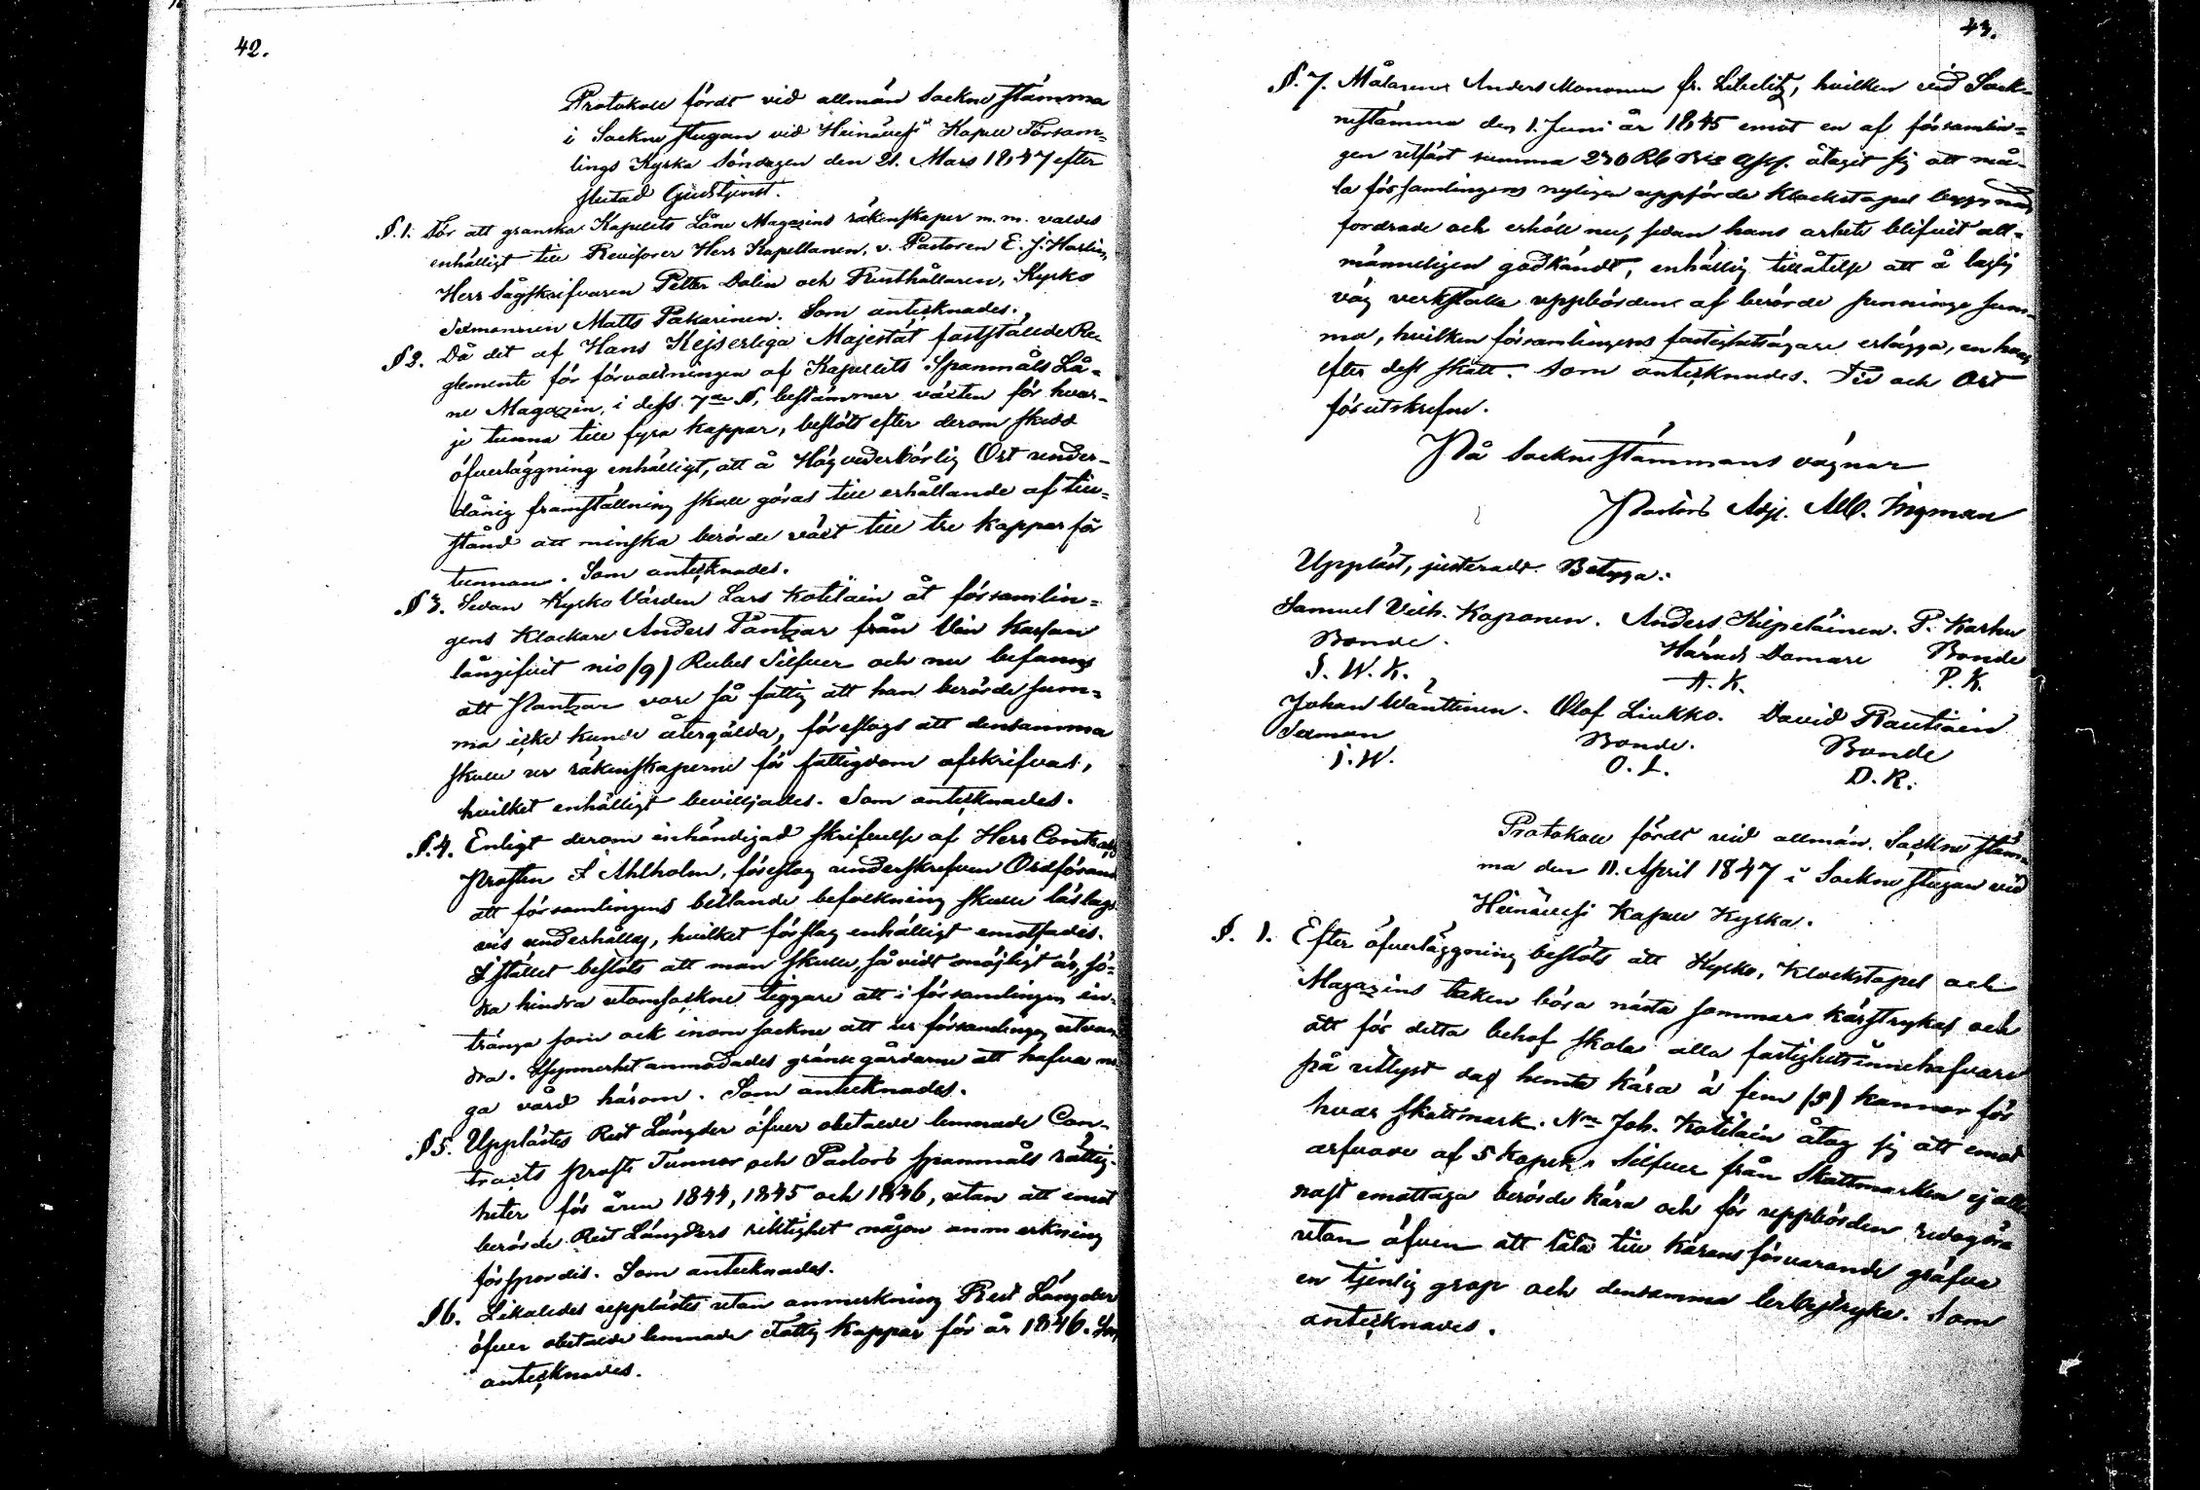 42.
Protokoll fördt vid allmän Sockne stämma
i Sockne stugan vid Heinävesi Kapell Försam-
lings Kyrka Söndagen den 21. Mars 1847 efter
slutad Gudstjenst.
§. 1. För att granska Kapellets Låne Magazins räkenskaper m. m. valdes
enhälligt till Revisorer Herr Kapellanen, v. Pastoren E. J.
Herr Sågskrifvaren Petter Dolin och Rusthållaren, Kyrko
Sexmannen Matts Pakarinen. Som antecknades.
§ 2. Då det af Hans Kejserliga Majestät fastställde Re-
glemente för förvaltningen af Kapellets Spanmåls Lå-
ne Magazin, i dess 7de §, bestämmer växten för hvar-
je tunna till fyra kappar, beslöts efter derom skedd
öfverläggning enhälligt, att å Högvederbörlig Ort under-
dånig framställning skulle göras till erhållande af till-
stånd att minska berörde växt till tre kappar för
tunnan. Som antecknades.
§ 3. Sedan Kyrko Värden Lars Kotilain åt församlin-
gens Klockare Anders Pantzar från Vin Kassan
långifvit nio (9) Rubel Silfver och nu befanns
att Pantzar vore så fattig att han berörde sum-
ma icke kunde återgälda, föreslogs att densamma
skulle ur räkenskaperne för fattigdom afskrifvas,
hvilket enhälligt beviljades. Som antecknades.
§. 4. Enligt derom inhändigad skrifvelse af Herr Contracts
Prosten J Ahlholm, föreslog underskrefven Ordförande
att församlingens betlande befolkning skulle
vis underhållas, hvilket förslag enhälligt emotsades.
I stället beslöts att man skulle, så vidt möjligt är, sö-
ka hindra utomsockne tiggare att i församlingen in-
tränga som ock inom sockne att ur församlingen utvan
dra. I synnerhet anmodades gränsegårdarne att hafva no
ga vård härom. Som antecknades.
§ 5. Upplästes Rest Längder öfver obetalde lemnade Con-
tracts Prosts Tunnor och Pastors spanmåls rättig-
heter för åren 1844, 1845 och 1846, utan att emot
berörde Rest Längders riktighet någon anmerkning
förspordes. Som antecknades.
§ 6. Likaledes upplästes utan anmerkning Rest Längder
öfver obetalde lemnade Fattig Kappar för år 1846. Som
antecknades.
43.
§. 7. Målaren Anders Mononen fr. Libelitz, hvilken vid Sock-
nestämma den 1. Juni år 1845 emot en af församlin-
gen utfäst summa 230 Rb Bco Ass. åtagit sig att må-
la församlingens nyligen uppförde Klockstapel
fordrade och erhöll nu, sedan hans arbete blifvit all-
männeligen godkändt, enhällig tillåtelse att å laglig
väg verkställa uppbörden af berörde penninge sum-
ma, hvilken församlingens fastighetsägare erlägga, en hvar
efter dess skatt. Som antecknades. Tid och Ort
förutskrefne.
På Sockne stämmans vägnar
Pastors Adj. Alb. Ingman
Uppläst, justeradt. Betyga:
Samuel Vilh. Koponen. Anders Kiepeläinen. P. Karhu
Bonde. Härads Domare Bonde
S. W. K. A. K. P. K.
Johan Wänttinen. Olof Liukko. David Rautiain
Sexman Bonde. Bonde
J. W. O. L. D. R.
Protokoll fördt vid allmän Sockne stäm-
ma den 11. April 1847 i Sockne stugan vid
Heinävesi Kapell Kyrka.
§. 1. Efter öfverläggning beslöts att Kyrko, Klockstapel och
Magazins taken böra nästa sommar kärstrykas och
att för detta behof skola alla fastighets innehafvare
på utlyst dag hemta kära à fem (5) kannor för
hvar skattmark. Nm Joh. Kotilain åtog sig att emot
arfvode af 5 Kopek Silfver från Skattmarken ej alle-
nast emottaga berörde kära och för uppbörden redogöra
utan äfven att låta till kärans förvarande gräfva
en tjenlig grop och densamma. Som
antecknades.